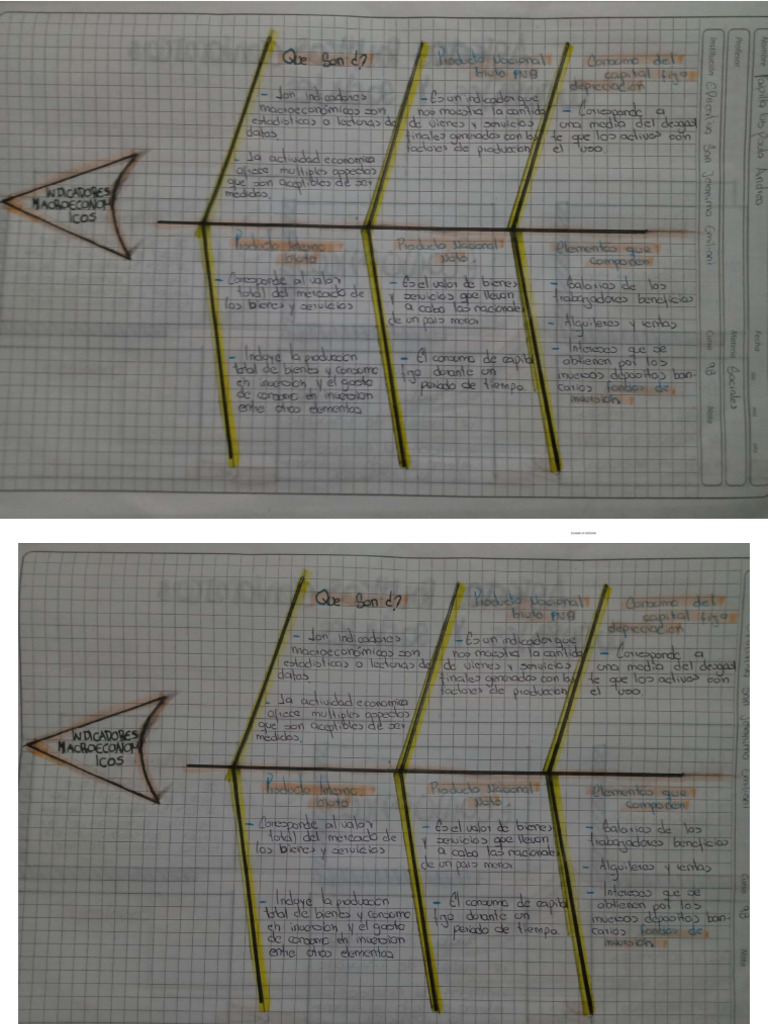 Que Son ¿?
- Son indicadores
macroeconómicos son
estadisticas o lecturas de
datos
- La actividad economica
ofrece multiples aspectos
que son aceptibles de ser
medidos.
Producto Nacional
bruto PNB
- Es un indicador que
nos muestra la cantida
de vienes y servicios
finales generados con los
factores de produccion
Consumo del
capital fijo
depreciación
- Corresponde a
una media del desgas
te que los activos con
el uso
INDICADORES
MACROECONOM
ICOS
Producto Interno
bruto
- Corresponde al valor
total del mercado de
los bienes y servicios
- Incluye la produccion
total de bienes y consumo
en inversion y el gasto
de consumo en inversion
entre otros elementos
Producto Nacional
Neto.
- Es el valor de bienes
y servicios que llevan
a cabo las nacionales
de un pais menor
- El consumo de capital
fijo durante un
periodo de tiempo.
Elementos que
componen
- Salarios de los
trabajadores beneficios
- Alquileres y rentas
- Intereses que se
obtienen por los
nuevos depositos ban-
carios fondos de
inversion
Nombre
Profesor
Institución San Jeronimo Emiliani
Fecha
Materia Sociales
Curso 98
Nota
Que Son ¿?
- Son indicadores
macroeconómicos son
estadisticas o lecturas de
datos
- La actividad economica
ofrece multiples aspectos
que son aceptibles de ser
medidos.
Producto Nacional
bruto PNB
- Es un indicador que
nos muestra la cantida
de vienes y servicios
finales generados con los
factores de produccion
Consumo del
capital fijo
depreciación
- Corresponde a
una media del desgas
te que los activos con
el uso
INDICADORES
MACROECONOM
ICOS
Producto Interno
bruto
- Corresponde al valor
total del mercado de
los bienes y servicios
- Incluye la produccion
total de bienes y consumo
en inversion y el gasto
de consumo en inversion
entre otros elementos
Producto Nacional
Neto.
- Es el valor de bienes
y servicios que llevan
a cabo las nacionales
de un pais menor
- El consumo de capital
fijo durante un
periodo de tiempo.
Elementos que
componen
- Salarios de los
trabajadores beneficios
- Alquileres y rentas
- Intereses que se
obtienen por los
nuevos depositos ban-
carios fondos de
inversion
San Jeronimo Emiliani
Curso 98
Nota